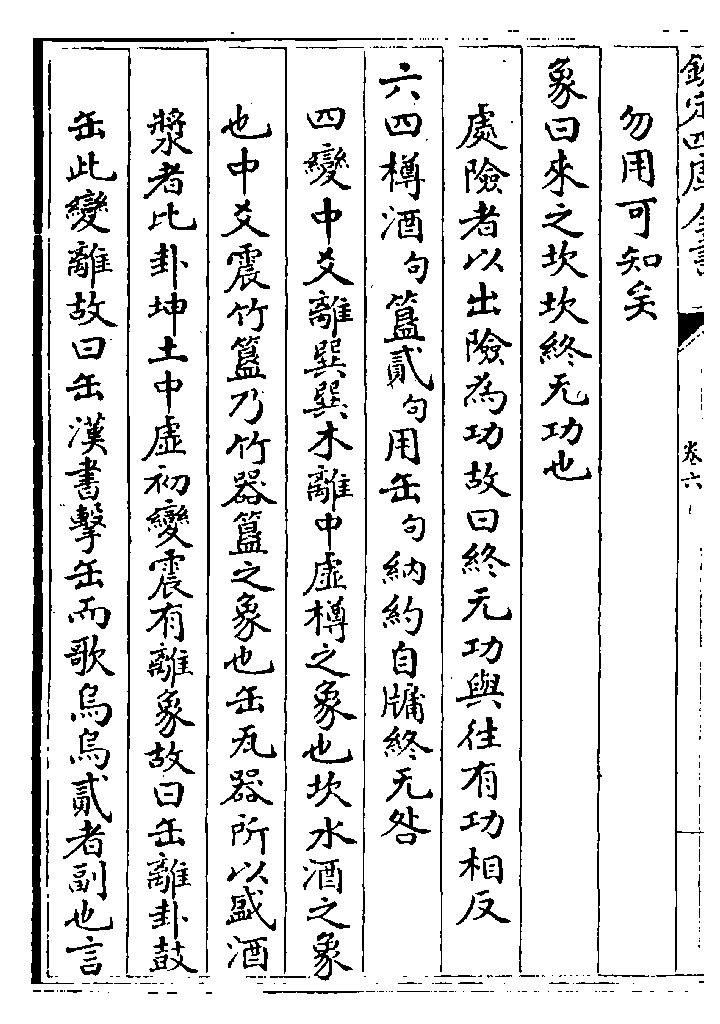 欽定四庫全書
卷六
勿用可知矣
象曰來之坎坎終无功也
處險者以出險為功故曰終无功與往有功相反
六四樽酒句簋貳句用缶句納約自牖終无咎
四變中爻離巽巽木離中虛樽之象也坎水酒之象
也中爻震竹簋乃竹器簋之象也缶瓦器所以盛酒
漿者比卦坤土中虛初變震有離象故曰缶離卦鼓
缶此變離故曰缶漢書擊缶而歌烏烏貳者副也言